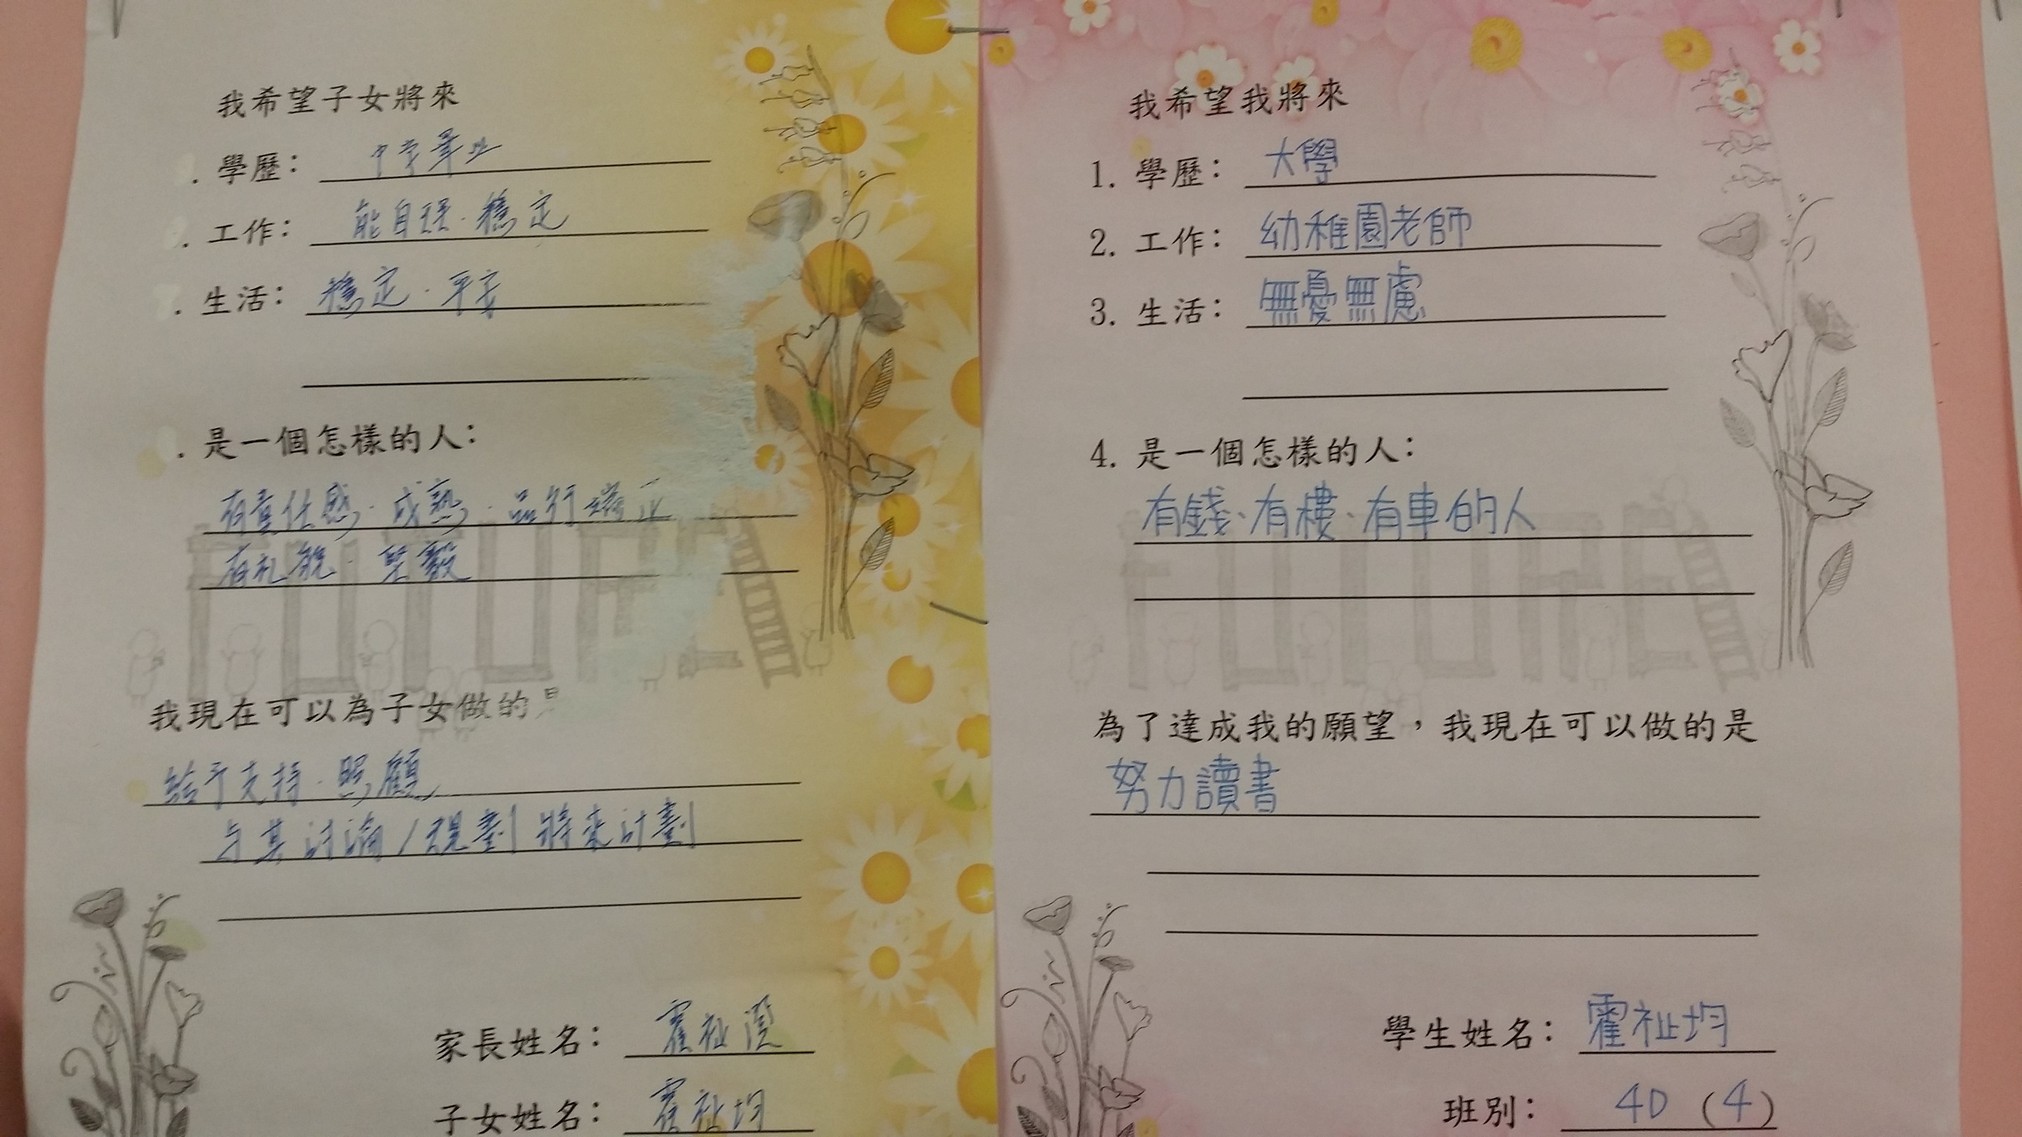 我希望子女將來
. 學歷： 中學畢業
. 工作： 能自理．穩定
. 生活： 穩定．平安
. 是一個怎樣的人：
有責任感．成熟．品行端正
有礼貌．堅毅
我現在可以為子女做的是
給予支持．照顧
与其討論/規劃將來計劃
家長姓名： 霍祉瀅
子女姓名： 霍祉均
我希望我將來
1. 學歷： 大學
2. 工作： 幼稚園老師
3. 生活： 無憂無慮
4. 是一個怎樣的人：
有錢、有樓、有車的人
FUTURE
為了達成我的願望，我現在可以做的是
努力讀書
學生姓名： 霍祉均
班別： 4D (4)